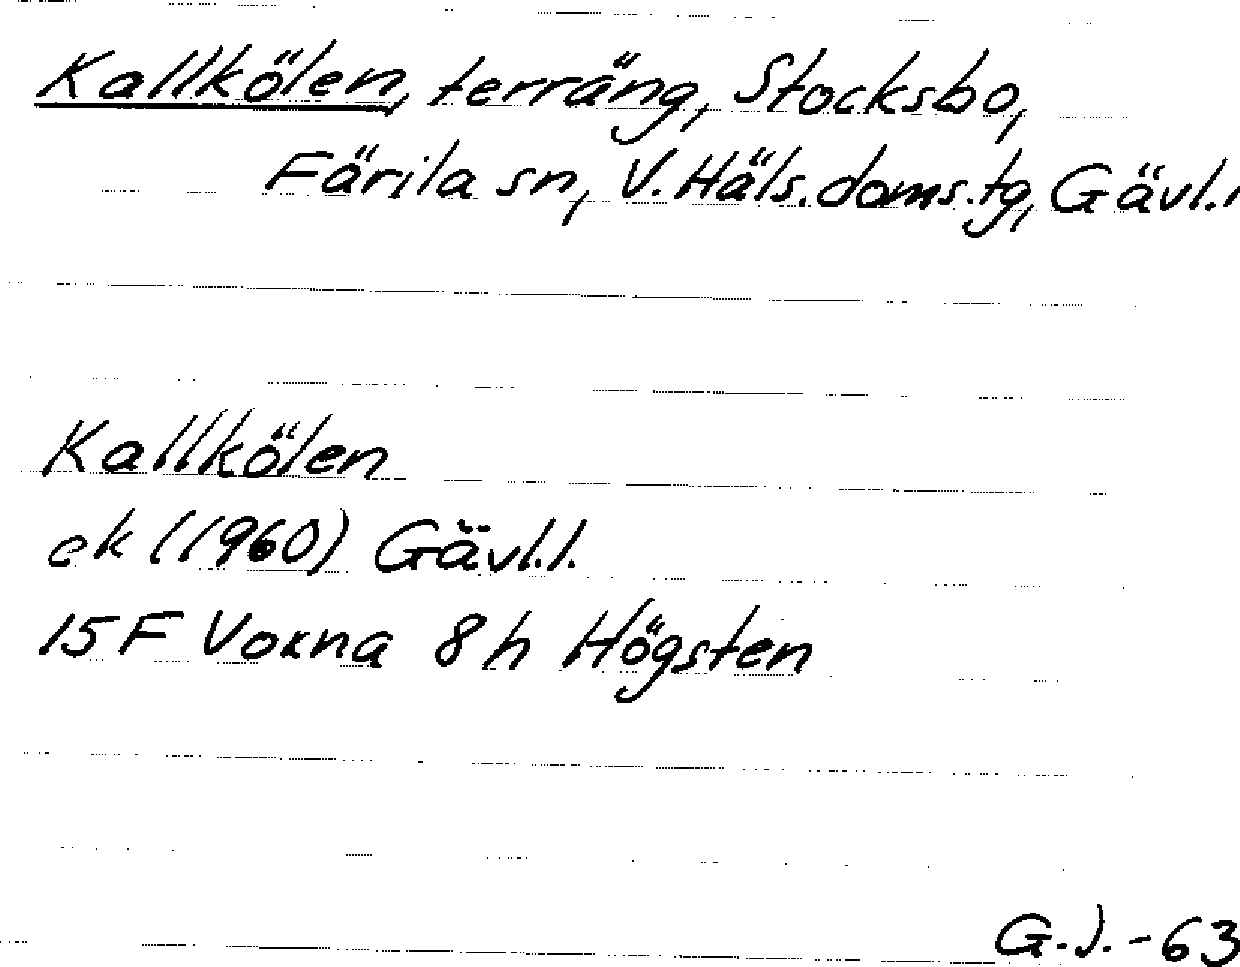 Kallkölen, terräng, Stocksbo,
Färila sn, V. Häls. doms. tg, Gävl. l
Kallkölen
ek (1960) Gävl. l.
15 F Voxna 8 h Högsten
G. J. - 63